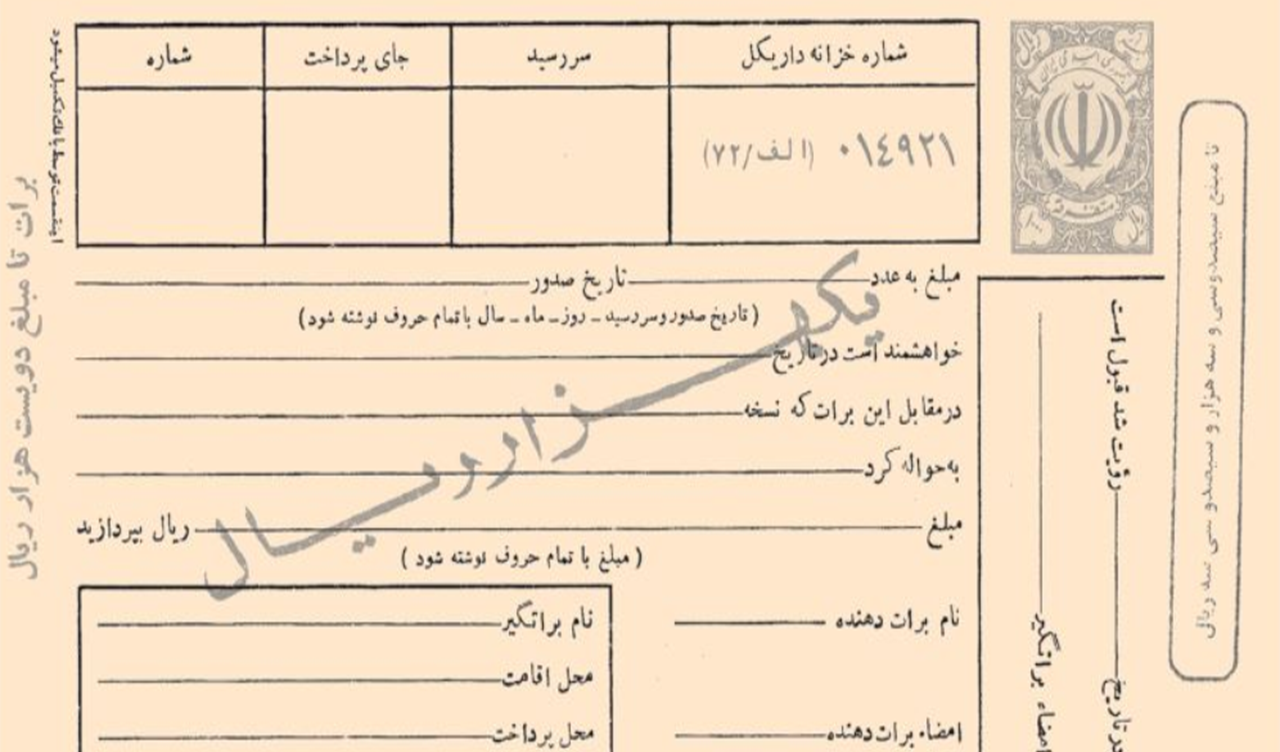 شماره خزانه داریکل
سررسید
جای پرداخت
شماره
۰۱٤۹۲۱ (الف/۷۲)
اینقسمت توسط بانک تکمیل میشود
برات تا مبلغ دویست هزار ریال
مبلغ به عدد تاریخ صدور
(تاریخ صدور و سررسید ـ روز ـ ماه ـ سال با تمام حروف نوشته شود)
خواهشمند است در تاریخ
درمقابل این برات که نسخه
به حواله کرد
مبلغ ریال بپردازید
(مبلغ با تمام حروف نوشته شود)
یکهزار ریال
نام برات دهنده
امضاء برات دهنده
نام براتگیر
محل اقامت
محل پرداخت
جمهوری اسلامی ایران
متفرقه
رؤیت شد قبول است
در تاریخ
امضاء براتگیر
تا مبلغ سیصدوسی و سه هزار و سیصدو سی سه ریال